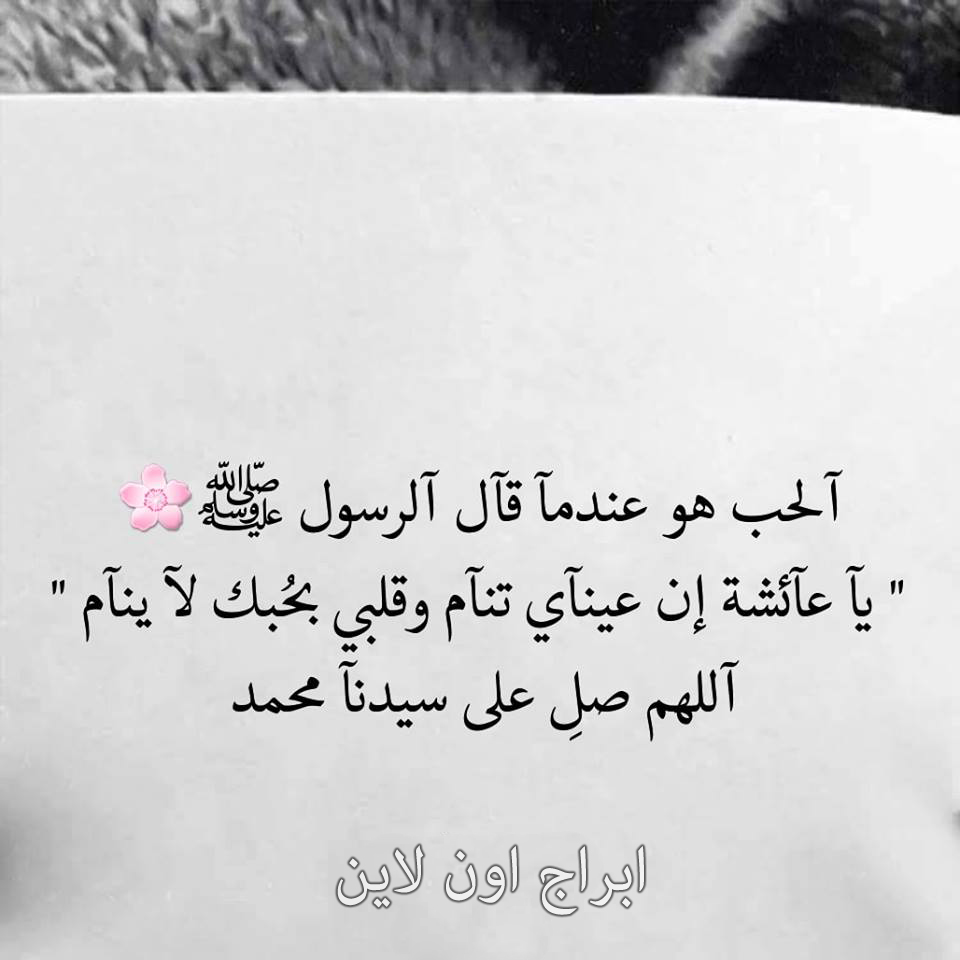 آلحب هو عندمآ قآل آلرسول ﷺ🌸
" يآ عآئشة إن عينآي تنآم وقلبي بحُبك لآ ينآم "
آللهم صلِ على سيدنآ محمد
ابراج اون لاين